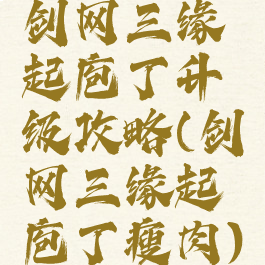 剑网三缘
起庖丁升
级攻略(剑
网三缘起
庖丁瘦肉)